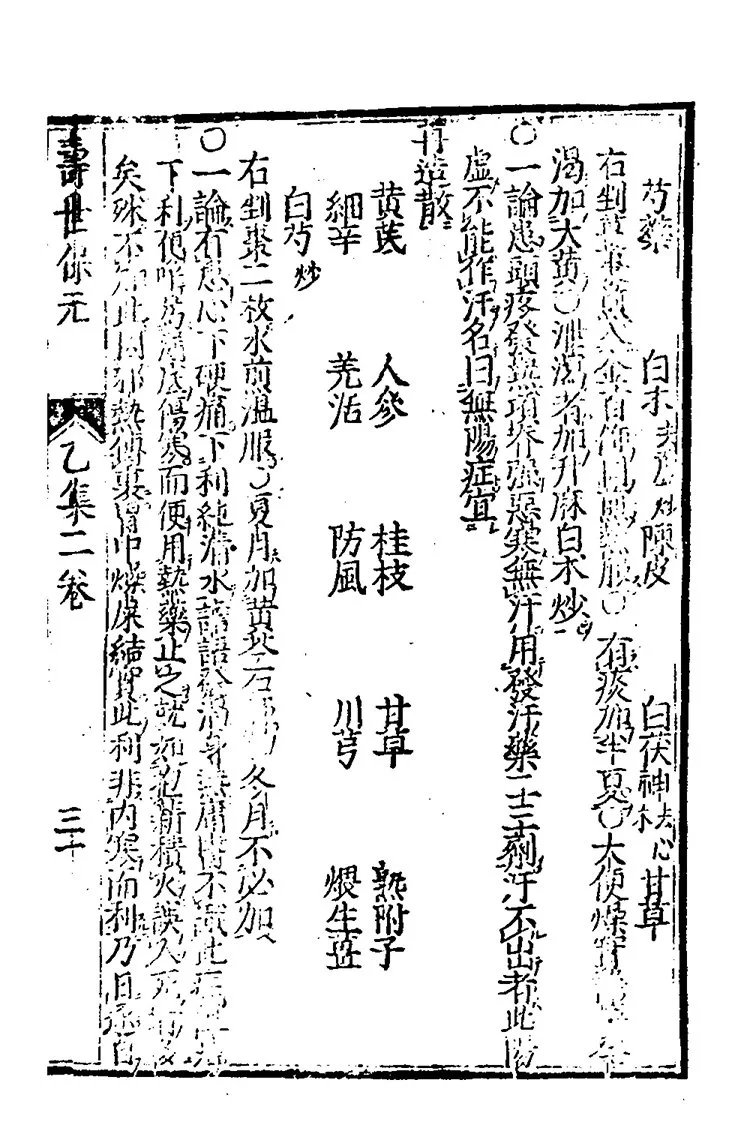 芍藥 白朮 陳皮 白茯神 甘草
右剉 服〇有痰加半夏〇大便燥
渴加大黃〇泄瀉者加升麻白朮炒
〇一論患頭疼發熱項脊強惡寒無汗用發汗藥二三劑汗不出者此陽
虛不能作汗名曰無陽症宜
再造散
黃芪 人參 桂枝 甘草 熟附子
細辛 羌活 防風 川芎 煨生薑
白芍炒
右剉棗二枚水煎溫服〇夏月加黃芩石 冬月不必加
〇一論有患心下硬痛下利純清水譫語發渴身熱庸醫不識此
下利便呼為漏底傷寒而便用熱藥止之就如抱薪積火誤人死
矣殊不知此因邪熱傳裏胃中燥屎結實此利非內寒而利乃日逐自
壽世保元 乙集二卷 三十